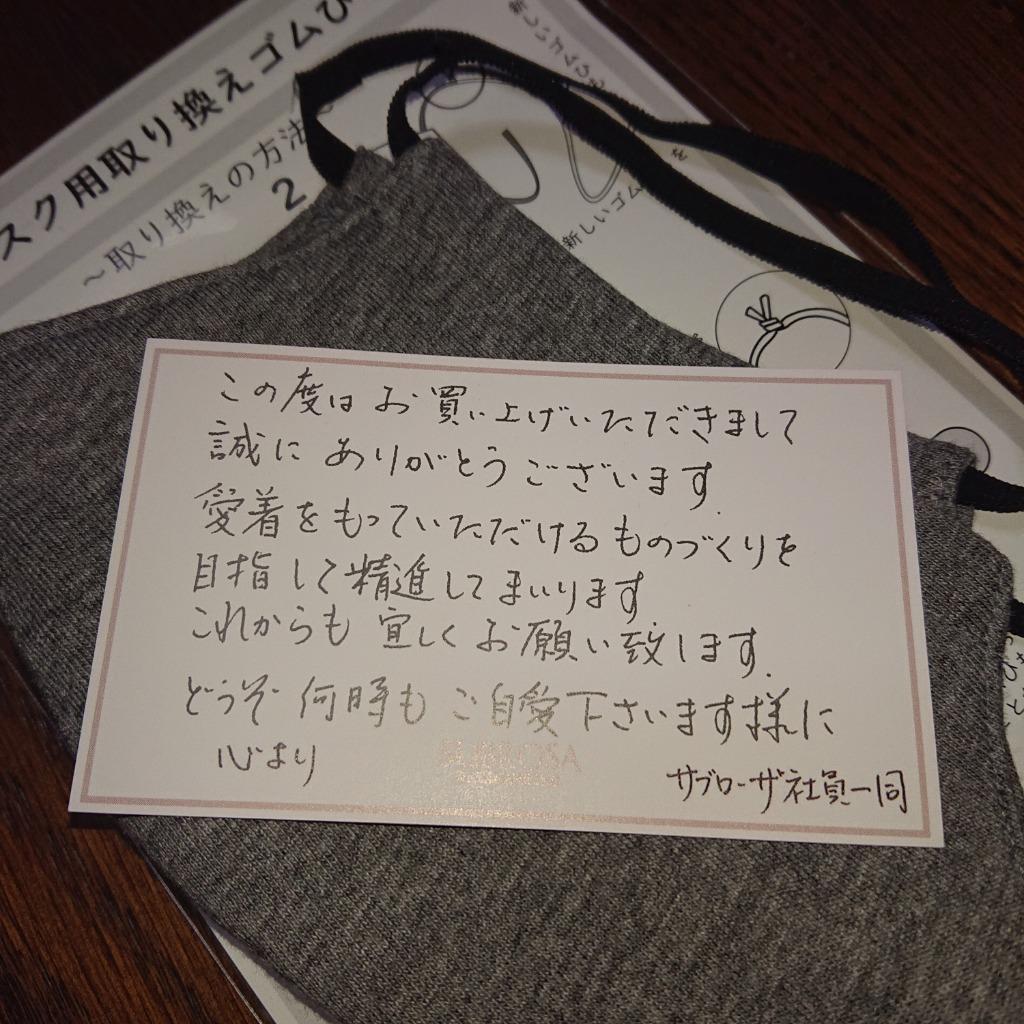 スク用取り換えゴムひ
〜取り換えの方法
2
新しいゴムひも
新しいゴム
を
この度は お買い上げいただきまして
誠に ありがとうございます.
愛着をもっていただけるものづくりを
目指して精進してまいります
これからも 宜しくお願い致します.
どうぞ 何時も ご自愛下さいます様に
心より
サブローザ社員一同